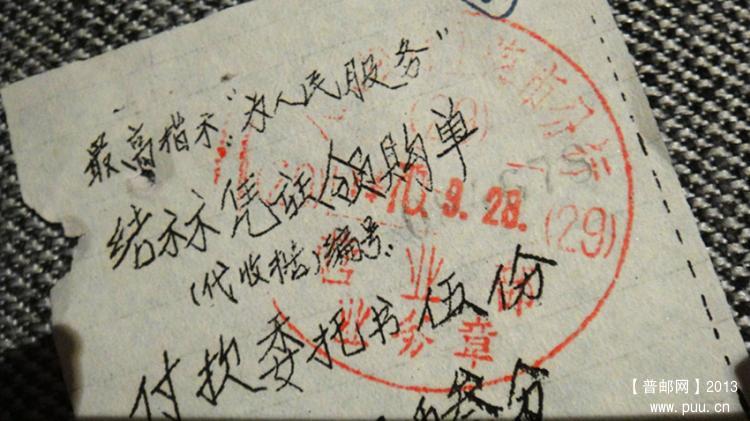 最高指示:"为人民服务"
结示凭证领购单
(代收据)编号:
付款委托书伍份
叁分
市分
(29)
70.9.28.
(29)
营业部
业务章
【普邮网】2013
www.puu.cn